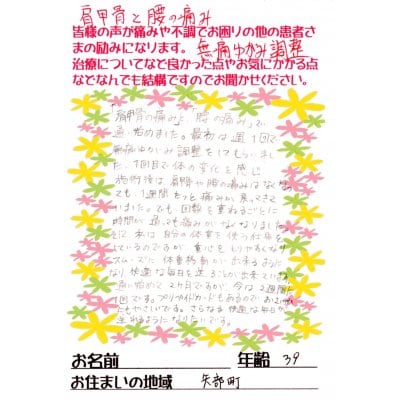 肩甲骨と腰の痛み
皆様の声が痛みや不調でお困りの他の患者さ
まの励みになります。無痛ゆがみ調整
治療についてなど良かった点やお気にかかる点
などなんでも結構ですのでお聞かせください。
「肩甲骨の痛みと、腰の痛み」で
通い始めました。最初は週1回で
無痛ゆがみ調整をしてもらいまし
た。1回目で体の変化を感じ
施術後は肩甲骨や腰の痛みはなくなっ
ても、1週間もつと痛みが戻ってきて
いました。でも、回数を重ねるごとに
時間が経っても痛みがなくなりました。
私は自分の体重を使う仕事を
しているのですが、重心をとりやすくなり
スムーズに体重移動が出来るように
なり快適な毎日を送ることが出来ています。
通い始めて2ヶ月ですが、今は2週間に
1回です。プリペイドカードもあるので
もやさしいです。さらなる快適な毎日が
送れるようになりたいです。
お名前 年齢 39
お住まいの地域 矢部町